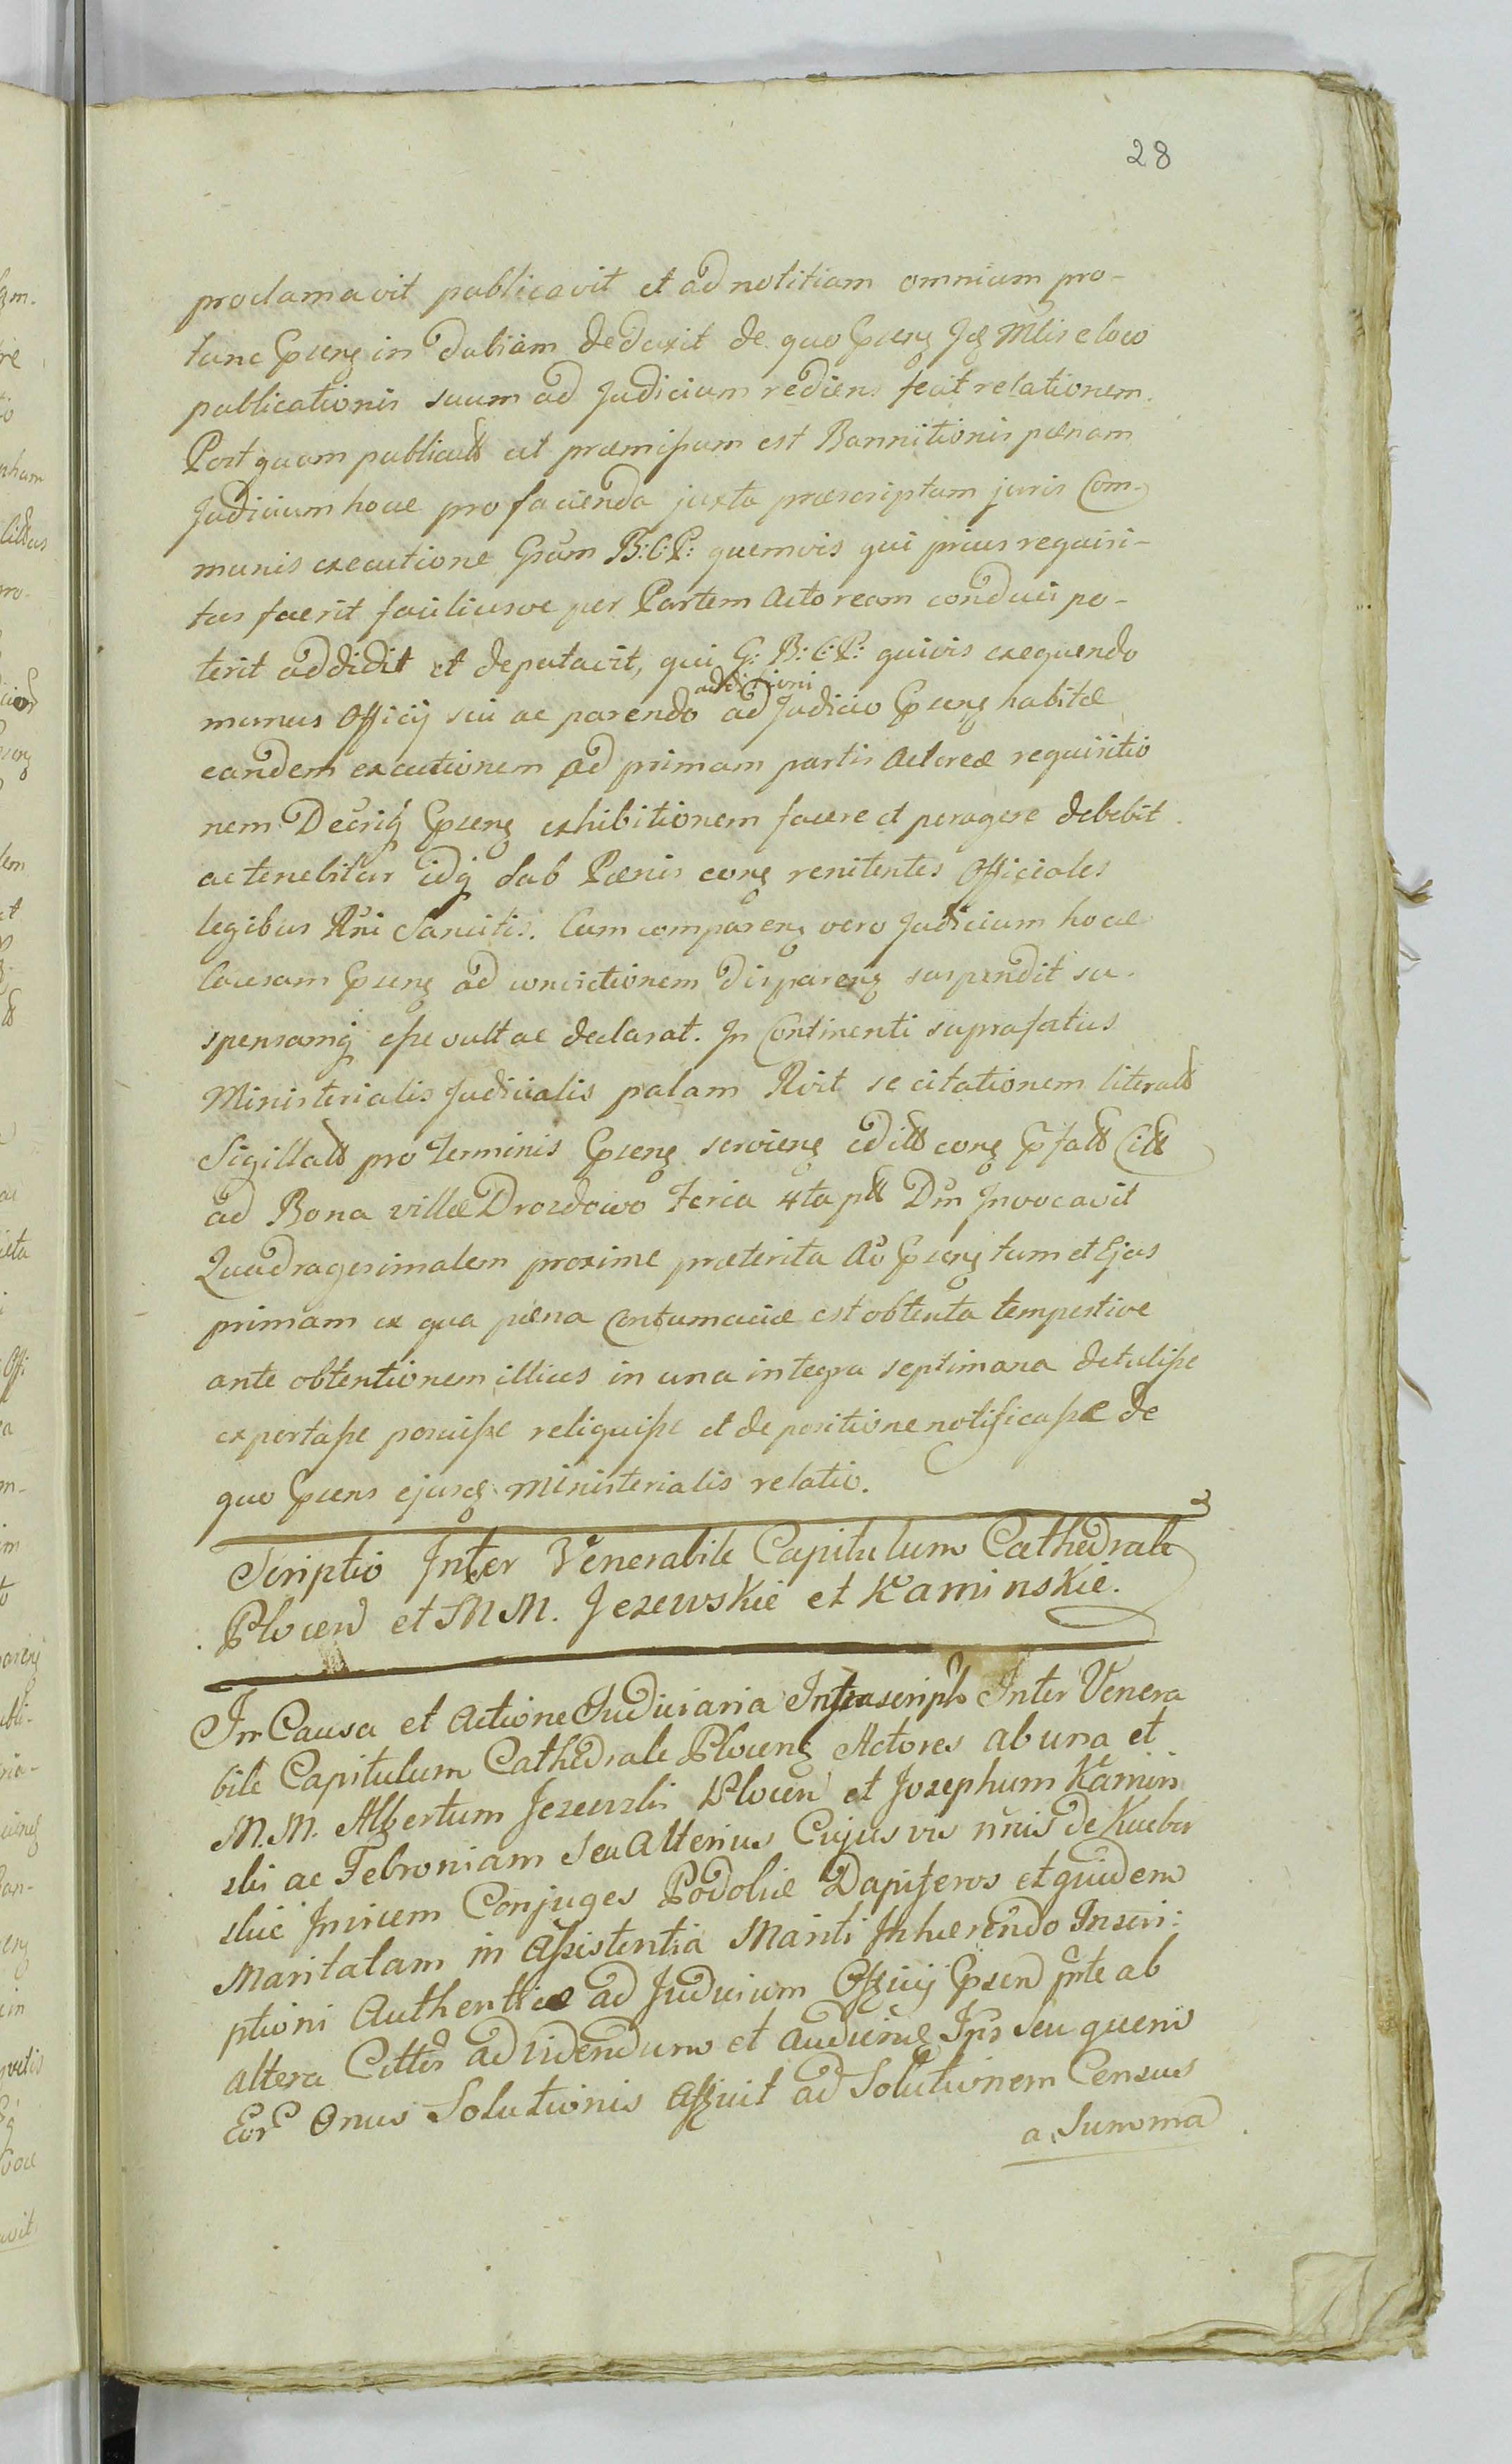 28
proclamavit publicavit et ad notitiam omnium pro-
tunc Gpseng in dubiam deduxit de quo Gpseng Jdg Mlis e loco
publicationis suum ad Judicium rediens fecit relationem.
Post quam publicatt ut præmissum est Bannitionis pœnam
Judicium hocce pro facienda juxta præscriptum juris Com-
munis executione Gsum B: C: P: quemvis qui prius requisi-
tus fuerit faciliusve per Partem Actoream conduci po-
terit addidit et deputavit, qui G: B: C: P: quivis exequendo
additioni
munus Officij sui ac parendo ad Judicio Gpseng habitæ
eandem executionem ad primam partis Actoreæ requisitio
nem Decriq Gpseng exhibitionem facere et peragere debebit
ac tenebitur idq sub Pœnis cong renitentes Officiales
legibus Rni Sancitis. Cum compareng vero Judicium hocce
Causam Gpseng ad convictionem dispareng suspendit su-
spensamq esse vult ac declarat. In Continenti suprafatus
Ministerialis Judicialis palam Rvit se citationem literatt
Sigillatt pro Terminis Gpseng servieng editt cong Gpfatt Citt
ad Bona villæ Drozdowo Feria 4ta ptt Dm Invocavit
Quadragesimalem proxime præterita Ao Gpseng tum et Ejus
primam ex qua pæna Contumaciæ est obtenta tempestive
ante obtentionem illius in una integra septimana detulisse
exportasse posuisse reliquisse et de positione notificasse de
quo Gpsens ejusdg Ministerialis relatio.
Scriptio Inter Venerabile Capitulum Cathedrale
Plocen et MM. Jezewskie et Kaminskie.
In Causa et Actione Judiciaria Infrascripta Inter Venera
bile Capitulum Cathedrale Ploceng Actores ab una et
M.M. Albertum Jezewski Plocen et Josephum Kamin
ski ac Febroniam seu Alterius Cujusvis nnis de Kucbor
skie Invicem Conjuges Podoliæ Dapiferos et quidem
Maritatam in Assistentia Mariti Inhærendo Inscri:
ptioni Authenticæ ad Judicium Officij Gpsen pnte ab
altera Cittos ad videndum et audiend Ips seu quem
Eor Onus Solutionis Afficit ad Solutionem Census
a Summa